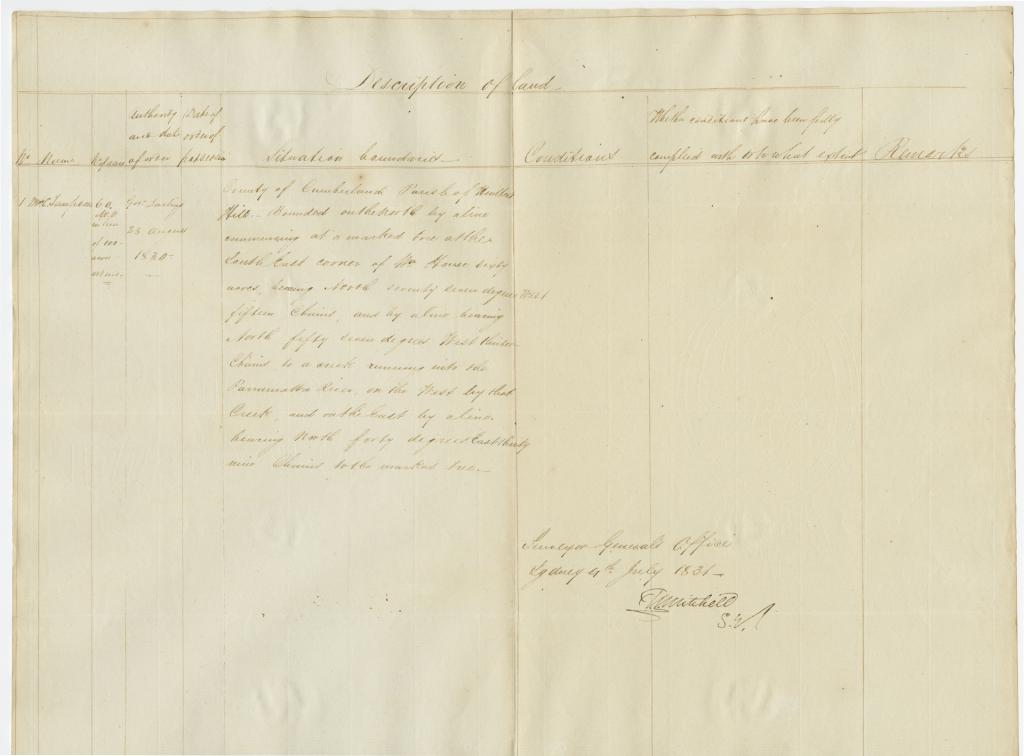 Description of land
No Name No of acres Authority and date of order Date of order of possession Situation boundaries Conditions Whether conditions have been fully complied with or to what extent Remarks
1
60
Govr Darling
25 August
1830
County of Cumberland Parish of
Hill. Bounded on the North by a line
commencing at a marked tree at the
South East corner of Wm House sixty
acres, bearing North seventy seven degrees West
fifteen Chains, and by a line bearing
North fifty seven degrees West
Chains to a creek running into the
Parramatta River, on the West by that
Creek, and on the East by a line
bearing North forty degrees East thirty
nine Chains to the marked tree.
Surveyor General's Office
Sydney 4th July 1831
TLMitchell
S.G.